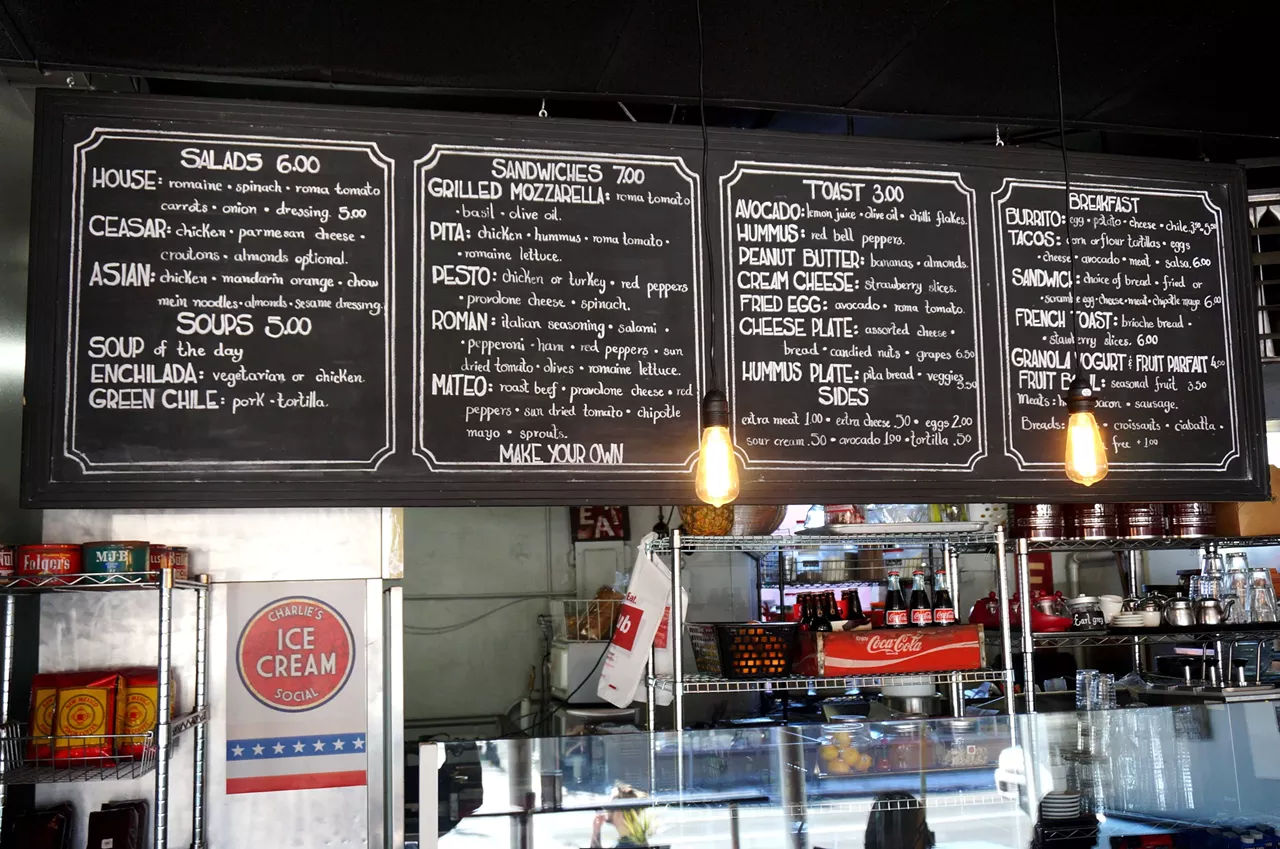 SALADS 6.00
HOUSE: romaine • spinach • roma tomato
carrots • onion • dressing. 5.00
CEASAR: chicken • parmesan cheese •
croutons • almonds optional.
ASIAN: chicken • mandarin orange • chow
mein noodles • almonds • sesame dressing.
SOUPS 5.00
SOUP of the day
ENCHILADA: vegetarian or chicken.
GREEN CHILE: pork • tortilla.
SANDWICHES 7.00
GRILLED MOZZARELLA: roma tomato
• basil • olive oil.
PITA: chicken • hummus • roma tomato •
• romaine lettuce.
PESTO: chicken or turkey • red peppers
• provolone cheese • spinach.
ROMAN: italian seasoning • salami •
• pepperoni • ham • red peppers • sun
dried tomato • olives • romaine lettuce.
MATEO: roast beef • provolone cheese • red
peppers • sun dried tomato • chipotle
mayo • sprouts.
MAKE YOUR OWN
TOAST 3.00
AVOCADO: lemon juice • olive oil • chilli flakes.
HUMMUS: red bell peppers.
PEANUT BUTTER: bananas • almonds.
CREAM CHEESE: strawberry slices.
FRIED EGG: avocado • roma tomato.
CHEESE PLATE: assorted cheese •
bread • candied nuts • grapes 6.50
HUMMUS PLATE: pita bread • veggies
5.50
SIDES
extra meat 1.00 • extra cheese .50 • eggs 2.00
sour cream .50 • avocado 1.00 • tortilla .50
BREAKFAST
BURRITO: egg • potato • cheese • chile. 3.50
TACOS: corn or flour tortillas • eggs
• cheese • avocado • meat • salsa. 6.00
SANDWICH: choice of bread • fried or
egg • cheese • meat • chipotle mayo 6.00
FRENCH TOAST: brioche bread •
• slices. 6.00
GRANOLA YOGURT & FRUIT PARFAIT 4.00
FRUIT seasonal fruit 3.50
Meats: bacon • sausage.
Breads: croissants • ciabatta •
free + 1.00
EAT
Folgers
MJB
CHARLIE'S
ICE
CREAM
SOCIAL
Eat.
Enjoy
Coca-Cola
Coca-Cola
Coca-Cola
Coca-Cola
Earl grey